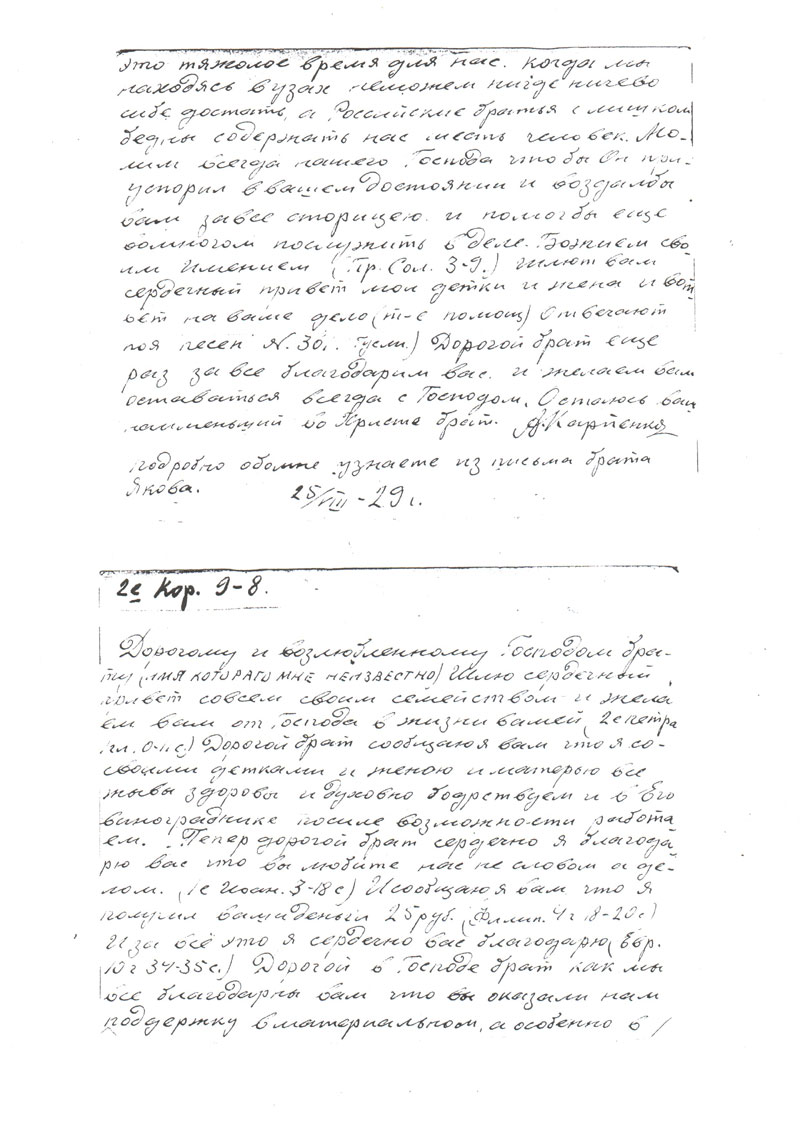 это тяжолое время для нас. когда мы
находясь в узах неможем нигде ничево
сибе достать, а Российские братья слишком
бедны содержать нас шесть человек. Мо-
лим всегда нашего Господа чтобы Он при-
успорил в вашем Достоянии и воздалбы
вам завсе сторицею. и помогбы еще
вомногом послужить в деле. Божием сво
им Имением (Пр. Сол. 3-9.) Шлют вам
сердечный привет мои детки и жена и вот
вет на ваше дело (т-е помощ) Отвечают
поя песен N. 301. Гусли.) Дорогой брат еще
раз за все благодарим вас. и желаем вам
оставаться всегда с Господом. Остаюсь ваш
наименьший во Христе брат. А. Карпенко
подробно обомне узнаете из письма брата
Якова. 25/VIII - 29 г.
2е Кор. 9-8.
Дорогому и возлюбленному Господом бра-
ту (ИМЯ КОТОРАГО МНЕ НЕИЗВЕСТНО) Шлю сердечный
привет совсем своим семейством и жела
ем вам от Господа в жизни вашей (2е петра
1 гл. 0-11 с.) Дорогой брат сообщаюя вам что я со-
своими детками и женою и матерью все
жывы здоровы и духовно бодрствуем и в Его
винограднике посиле возможности работа
ем. Тепер дорогой брат сердечно я благода
рю вас что вы любите нас не словом а де-
лом. (1е Иоан. 3-18 с) И сообщаюя вам что я
получил вашиденьги 25 руб. (Филип. 4 г 18-20 с)
И за всё это я сердечно вас благодарю (Евр.
10 г 34-35 с.) Дорогой в Господе брат как мы
все благодарны вам что вы оказали нам
поддержку в материальном, а особенно в /